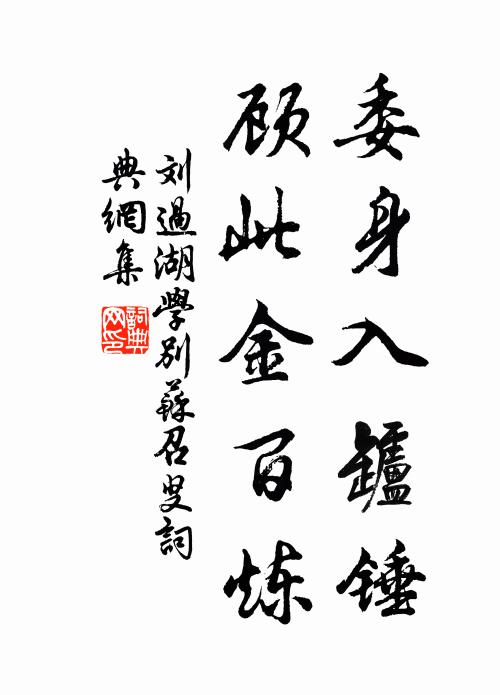 委身入鑪锤
顾此金百炼
刘過湖學别蘇召叟詞
典網集
詞典网印